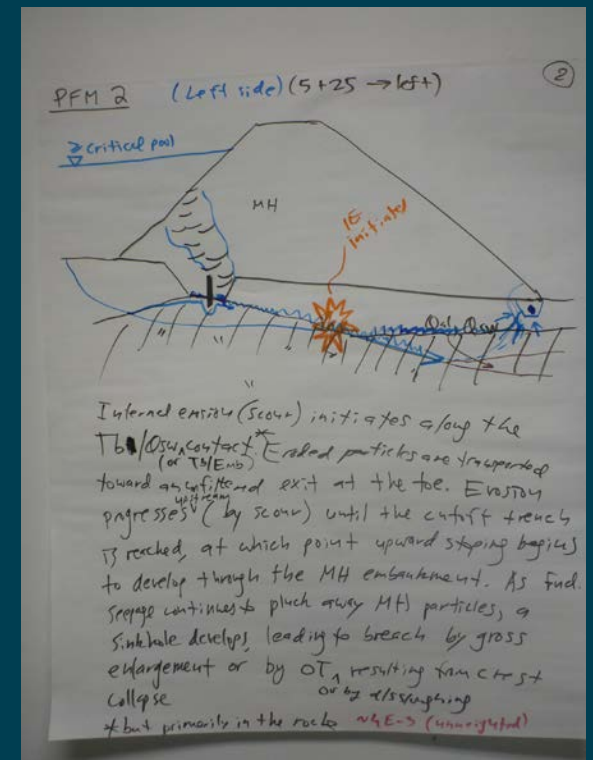 2
PFM 2 (Left side) (5+25 → left)
≥ critical pool
MH
IE initiates
Qal Qsw
Internal erosion (scour) initiates along the
Tb/Qsw contact.* Eroded particles are transported
(or Tb/Emb)
toward an unfiltered exit at the toe. Erosion
progresses upstream (by scour) until the cutoff trench
is reached, at which point upward stoping begins
to develop through the MH embankment. As fnd.
seepage continues to pluck away MH particles, a
sinkhole develops, leading to breach by gross
enlargement or by OT resulting from crest
collapse or by d/s sloughing
* but primarily in the rock ~4E-3 (unweighted)